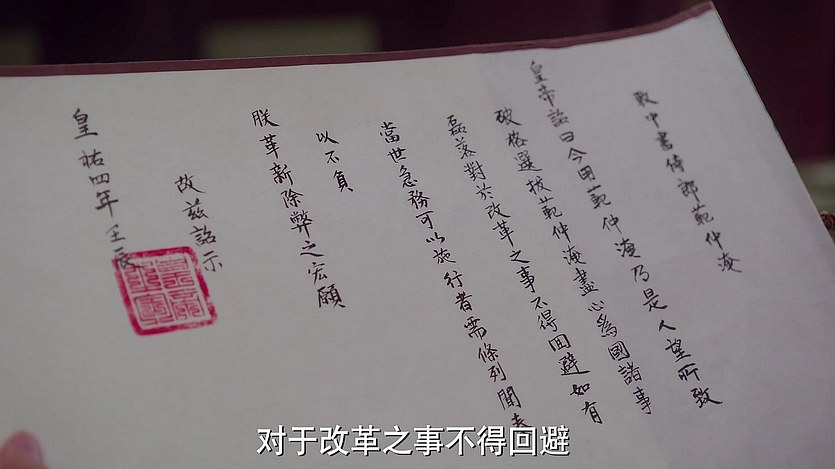 敕中書侍郎範仲淹
皇帝詔曰今用範仲淹乃是人望所致
破格選拔範仲淹盡心為國諸事
磊落對於改革之事不得回避如有
當世急務可以施行者需條列聞奏
以不負
朕革新除弊之宏願
故茲詔示
皇祐四年壬辰
对于改革之事不得回避